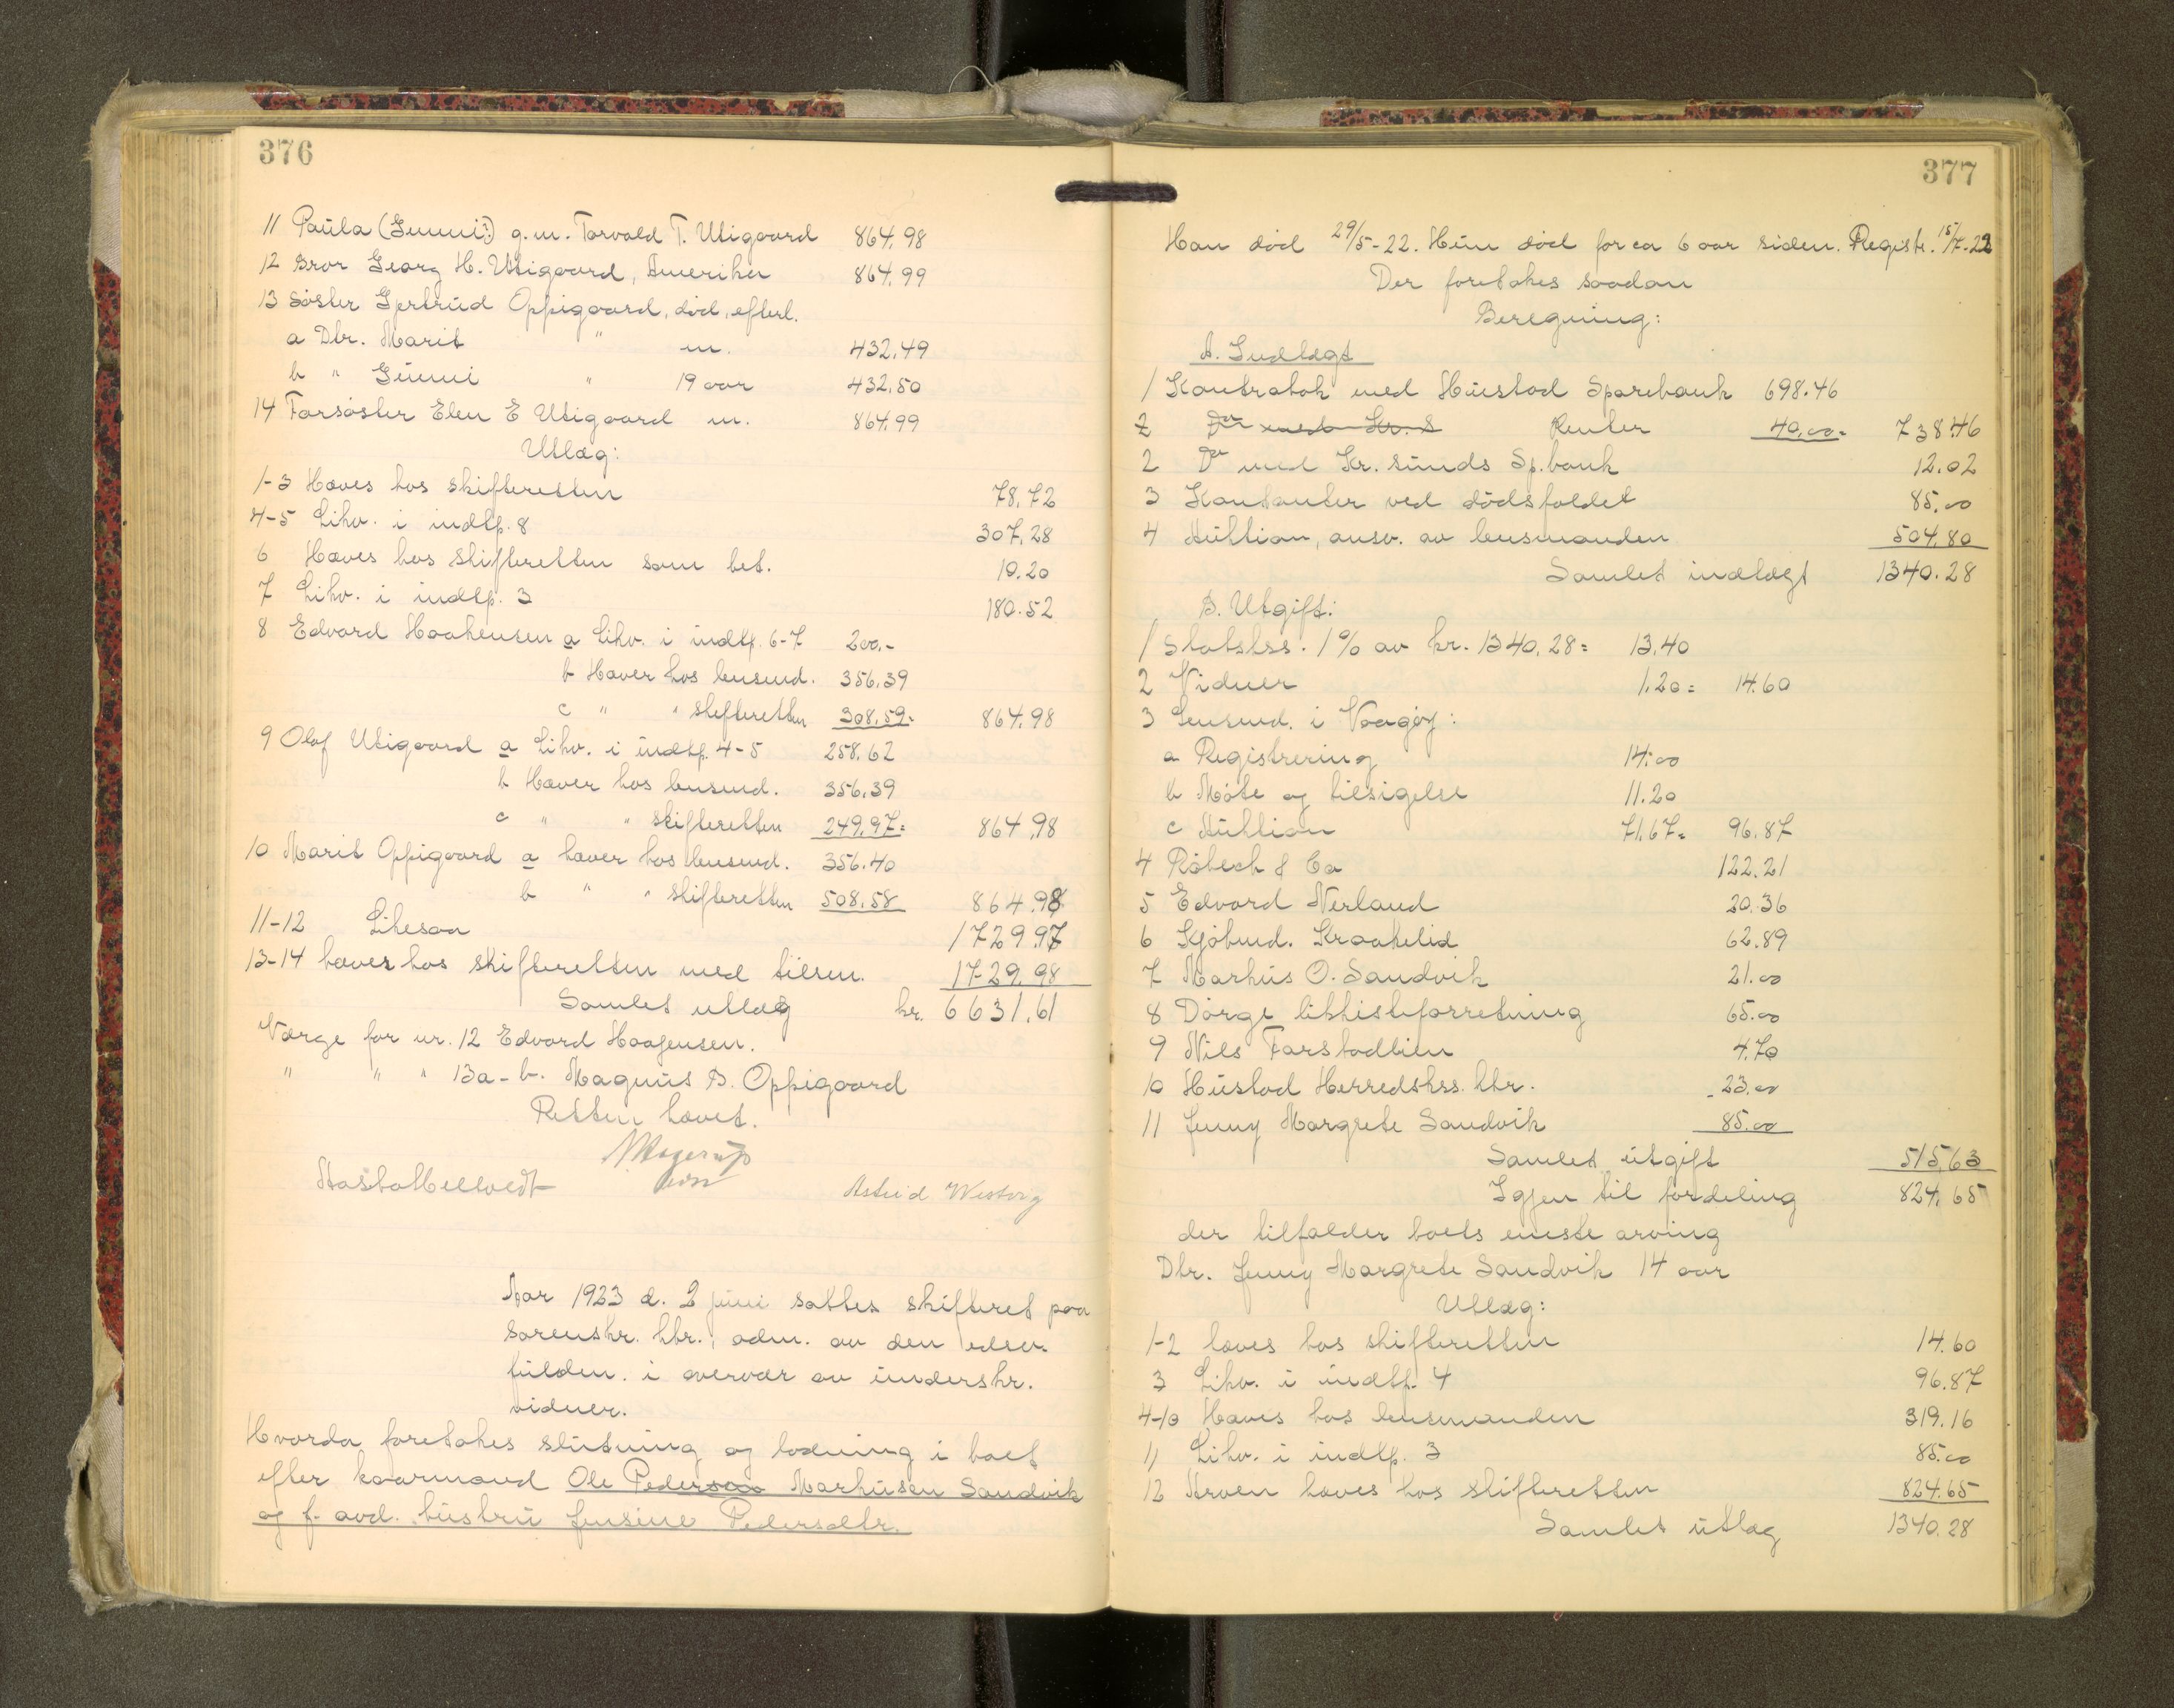 376
11 Paula (Gunni?) g.m. Torvald T. Utigaard 864.98
12 Bror Georg H. Utigaard, Amerika 864.99
13 Søster Gjertrud Oppigaard, død, efterl.
a Dtr. Marit " m. 432.49
b " Gunni " 19 aar 432.50
14 Farsøster Elen E Utigaard m. 864.99
Utlæg:
1-3 Haves hos skifteretten 78.72
4-5 Likv. i indtp. 8 307.28
6 Haves hos skifteretten som bet. 10.20
7 Likv. i indtp. 3 180.52
8 Edvard Haakensen a Likv. i indtp. 6-7 200.-
b Haver hos lensmd. 356.39
c " " skifteretten 308.59= 864.98
9 Olaf Utigaard a Likv. i indtp. 4-5 258.62
b Haver hos lensmd. 356.39
c " " skifteretten 249.97= 864.98
10 Marit Oppigaard a haver hos lensmd. 356.40
b " " skifteretten 508.58 864.98
11-12 Likesaa 1729.97
13-14 haves hos skifteretten med tilsm. 1729.98
Samlet utlæg kr. 6631.61
Værge for nr. 12 Edvard Haagensen.
" " " 13a-b. Magnus B. Oppigaard
Retten hævet.
Astrid Westvig
Aar 1923 d. 2 juni sattes skifteret paa
sorenskr. ktr., adm. av den edsv.
fuldm. i overvær av underskr.
vidner.
Hvorda foretakes slutning og lodning i boet
efter kaarmand Ole Pederson Markusen Sandvik
og f. avd. hustru Jensine Pedersdtr.
377
Han død 29/5-22. Hun død for ca 6 aar siden. Registr. 15/7-22
Der foretakes saadan
Beregning:
A. Indlagt
1 Kontrabok med Hustad Sparebank 698.46
2 Do med Kr. S Renter 40.00= 738.46
2 Do med Kr. sunds Sp.bank 12.02
3 Kontanter ved dødsfaldet 85.00
4 Auktion, ansv. av lensmanden 504.80
Samlet indlagt 1340.28
B. Utgift:
1 Statskss. 1% av kr. 1340.28= 13.40
2 Vidner 1.20= 14.60
3 Lensmd. i Vaagøy:
a Registrering 14.00
b Møte og tilsigelse 11.20
c Auktion 71.67= 96.87
4 Røbech & Co 122.21
5 Edvard Nerland 20.36
6 Kjøbmd. Kraakelid 62.89
7 Markus O. Sandvik 21.00
8 Dørge likkisteforretning 65.00
9 Nils Farstadlien 4.70
10 Hustad Herredskss. ktr. 23.00
11 Jenny Margrete Sandvik 85.00
Samlet utgift 515.63
Igjen til fordeling 824.65
der tilfalder boets eneste arving
Dtr. Jenny Margrete Sandvik 14 aar
Utlæg:
1-2 haves hos skifteretten 14.60
3 Likv. i indtp. 4 96.87
4-10 Haves hos lensmanden 319.16
11 Likv. i indtp. 3 85.00
12 Arven haves hos skifteretten 824.65
Samlet utlæg 1340.28